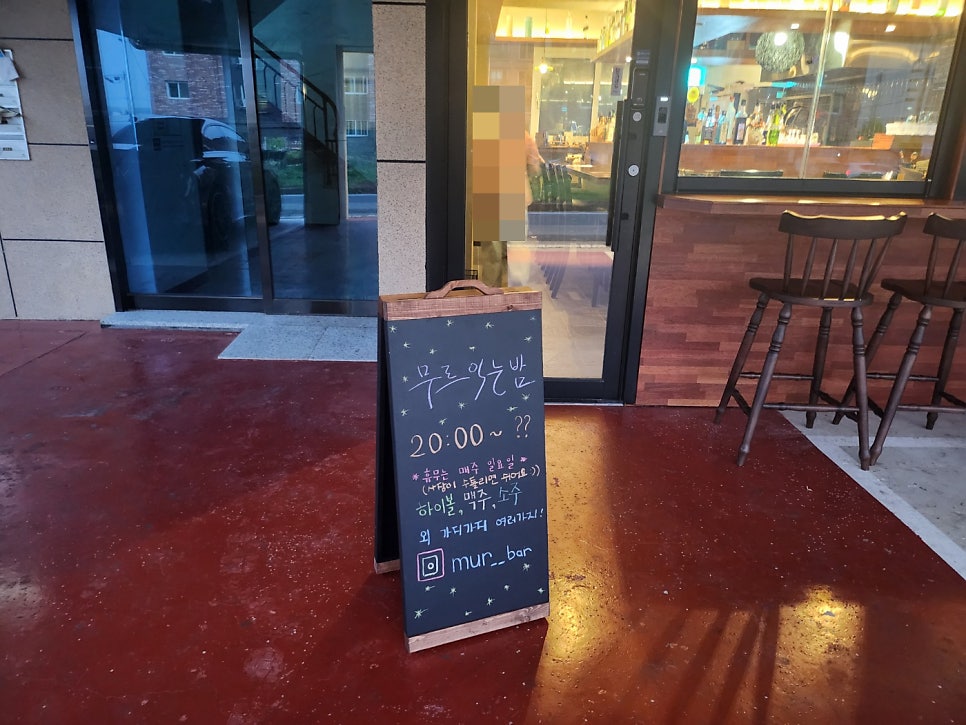 무르익는밤
20:00 ~ ??
*휴무는 매주 일요일*
수틀리면 쉬어요))
하이볼, 맥주, 소주
외 가디가지 여러가지!
mur__bar